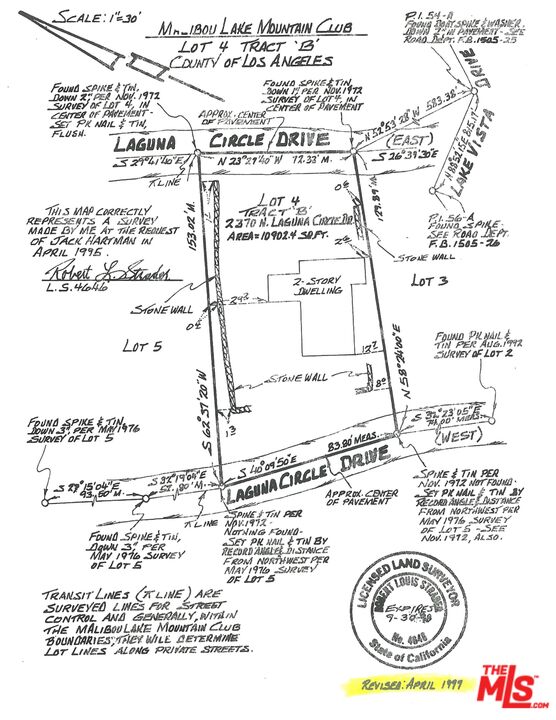 SCALE: 1"=30'
MALIBOU LAKE MOUNTAIN CLUB
LOT 4 TRACT 'B'
COUNTY OF LOS ANGELES
P.I. 54-A
FOUND BOAT SPIKE & WASHER
DOWN 2" IN PAVEMENT - SEE
ROAD DEPT. F.B. 1505-25
FOUND SPIKE & TIN,
DOWN 2", PER NOV. 1972
SURVEY OF LOT 4, IN
CENTER OF PAVEMENT-
SET PK NAIL & TIN,
FLUSH.
FOUND SPIKE & TIN,
DOWN 1", PER NOV. 1972
SURVEY OF LOT 4, IN
CENTER OF PAVEMENT
APPROX. CENTER
OF PAVEMENT
N 52°53'28"W 583.38'
LAKE VISTA DRIVE
LAGUNA CIRCLE DRIVE
(EAST)
S 29°41'40"E
N 23°27'40"W 72.33' M.
S 26°39'30"E
π LINE
THIS MAP CORRECTLY
REPRESENTS A SURVEY
MADE BY ME AT THE REQUEST
OF JACK HARTMAN IN
APRIL 1995.
Robert L. Strader
L.S. 4646
153.02' M.
LOT 4
TRACT 'B'
2370 N. LAGUNA CIRCLE DR.
AREA = 10902.4 SQ. FT.
P.I. 56-A
FOUND SPIKE-
SEE ROAD DEPT.
F.B. 1505-26
STONE WALL
2-STORY
DWELLING
LOT 3
STONE WALL
LOT 5
STONE WALL
S 62°37'20"W
N 58°24'00"E
FOUND PK NAIL &
TIN PER AUG. 1992
SURVEY OF LOT 2
FOUND SPIKE & TIN,
DOWN 3", PER MAY 1976
SURVEY OF LOT 5
(WEST)
83.80' MEAS.
S 40°09'50"E
LAGUNA CIRCLE DRIVE
S 32°19'04"E
S 27°15'04"E
π LINE
APPROX. CENTER
OF PAVEMENT
FOUND SPIKE & TIN,
DOWN 3", PER
MAY 1976 SURVEY
OF LOT 5
SPIKE & TIN PER
NOV. 1972-
NOTHING FOUND-
SET PK NAIL & TIN BY
RECORD ANGLE & DISTANCE
FROM NORTHWEST PER
MAY 1976 SURVEY
OF LOT 5
SPIKE & TIN PER
NOV. 1972 NOT FOUND-
SET PK NAIL & TIN BY
RECORD ANGLE & DISTANCE
FROM NORTHWEST PER
MAY 1976 SURVEY
OF LOT 5 - SEE
NOV. 1972, ALSO.
TRANSIT LINES (π LINE) ARE
SURVEYED LINES FOR STREET
CONTROL AND GENERALLY, WITHIN
THE MALIBOU LAKE MOUNTAIN CLUB
BOUNDARIES, THEY WILL DETERMINE
LOT LINES ALONG PRIVATE STREETS.
LICENSED LAND SURVEYOR
ROBERT LOUIS STRADER
EXPIRES
9-30-98
No. 4646
State of California
REVISED: APRIL 1999
THE
MLS